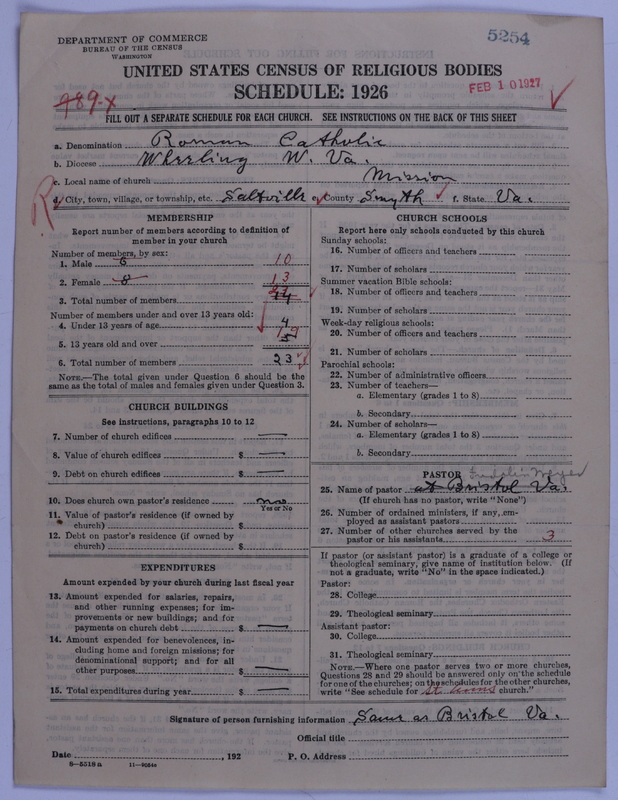 DEPARTMENT OF COMMERCE
BUREAU OF THE CENSUS
WASHINGTON
5254
UNITED STATES CENSUS OF RELIGIOUS BODIES
SCHEDULE: 1926
FEB 10 1927
489-x
FILL OUT A SEPARATE SCHEDULE FOR EACH CHURCH. SEE INSTRUCTIONS ON THE BACK OF THIS SHEET
a. Denomination Roman Catholic
b. Diocese Wheeling W. Va.
c. Local name of church Mission
R
d. City, town, village, or township, etc. Saltville e. County Smyth f. State Va.
MEMBERSHIP
Report number of members according to definition of
member in your church
Number of members, by sex:
1. Male 6 10
2. Female 8 13
3. Total number of members 14
Number of members under and over 13 years old:
4. Under 13 years of age 4
5. 13 years old and over 19
6. Total number of members 23
NOTE.—The total given under Question 6 should be the
same as the total of males and females given under Question 3.
CHURCH BUILDINGS
See instructions, paragraphs 10 to 12
7. Number of church edifices —
8. Value of church edifices $ —
9. Debt on church edifices $ —
10. Does church own pastor's residence no
Yes or No
11. Value of pastor's residence (if owned by
church) $
12. Debt on pastor's residence (if owned by
church) $
EXPENDITURES
Amount expended by your church during last fiscal year
13. Amount expended for salaries, repairs,
and other running expenses; for im-
provements or new buildings; and for
payments on church debt $ —
14. Amount expended for benevolences, in-
cluding home and foreign missions; for
denominational support; and for all
other purposes $ —
15. Total expenditures during year $ —
CHURCH SCHOOLS
Report here only schools conducted by this church
Sunday schools:
16. Number of officers and teachers
17. Number of scholars
Summer vacation Bible schools:
18. Number of officers and teachers
19. Number of scholars
Week-day religious schools:
20. Number of officers and teachers
21. Number of scholars
Parochial schools:
22. Number of administrative officers
23. Number of teachers—
a. Elementary (grades 1 to 8)
b. Secondary
24. Number of scholars—
a. Elementary (grades 1 to 8)
b. Secondary
PASTOR
25. Name of pastor at Bristol Va.
(If church has no pastor, write "None")
26. Number of ordained ministers, if any, em-
ployed as assistant pastors
27. Number of other churches served by the
pastor or his assistants 3
If pastor (or assistant pastor) is a graduate of a college or
theological seminary, give name of institution below. (If
not a graduate, write "No" in the space indicated.)
Pastor:
28. College
29. Theological seminary
Assistant pastor:
30. College
31. Theological seminary
NOTE.—Where one pastor serves two or more churches,
Questions 28 and 29 should be answered only on the schedule
for one of the churches; on the schedules for the other churches,
write "See schedule for St Anns church."
Signature of person furnishing information Same as Bristol Va.
Official title
Date , 192 P. O. Address
8—5518 a 11—9264a